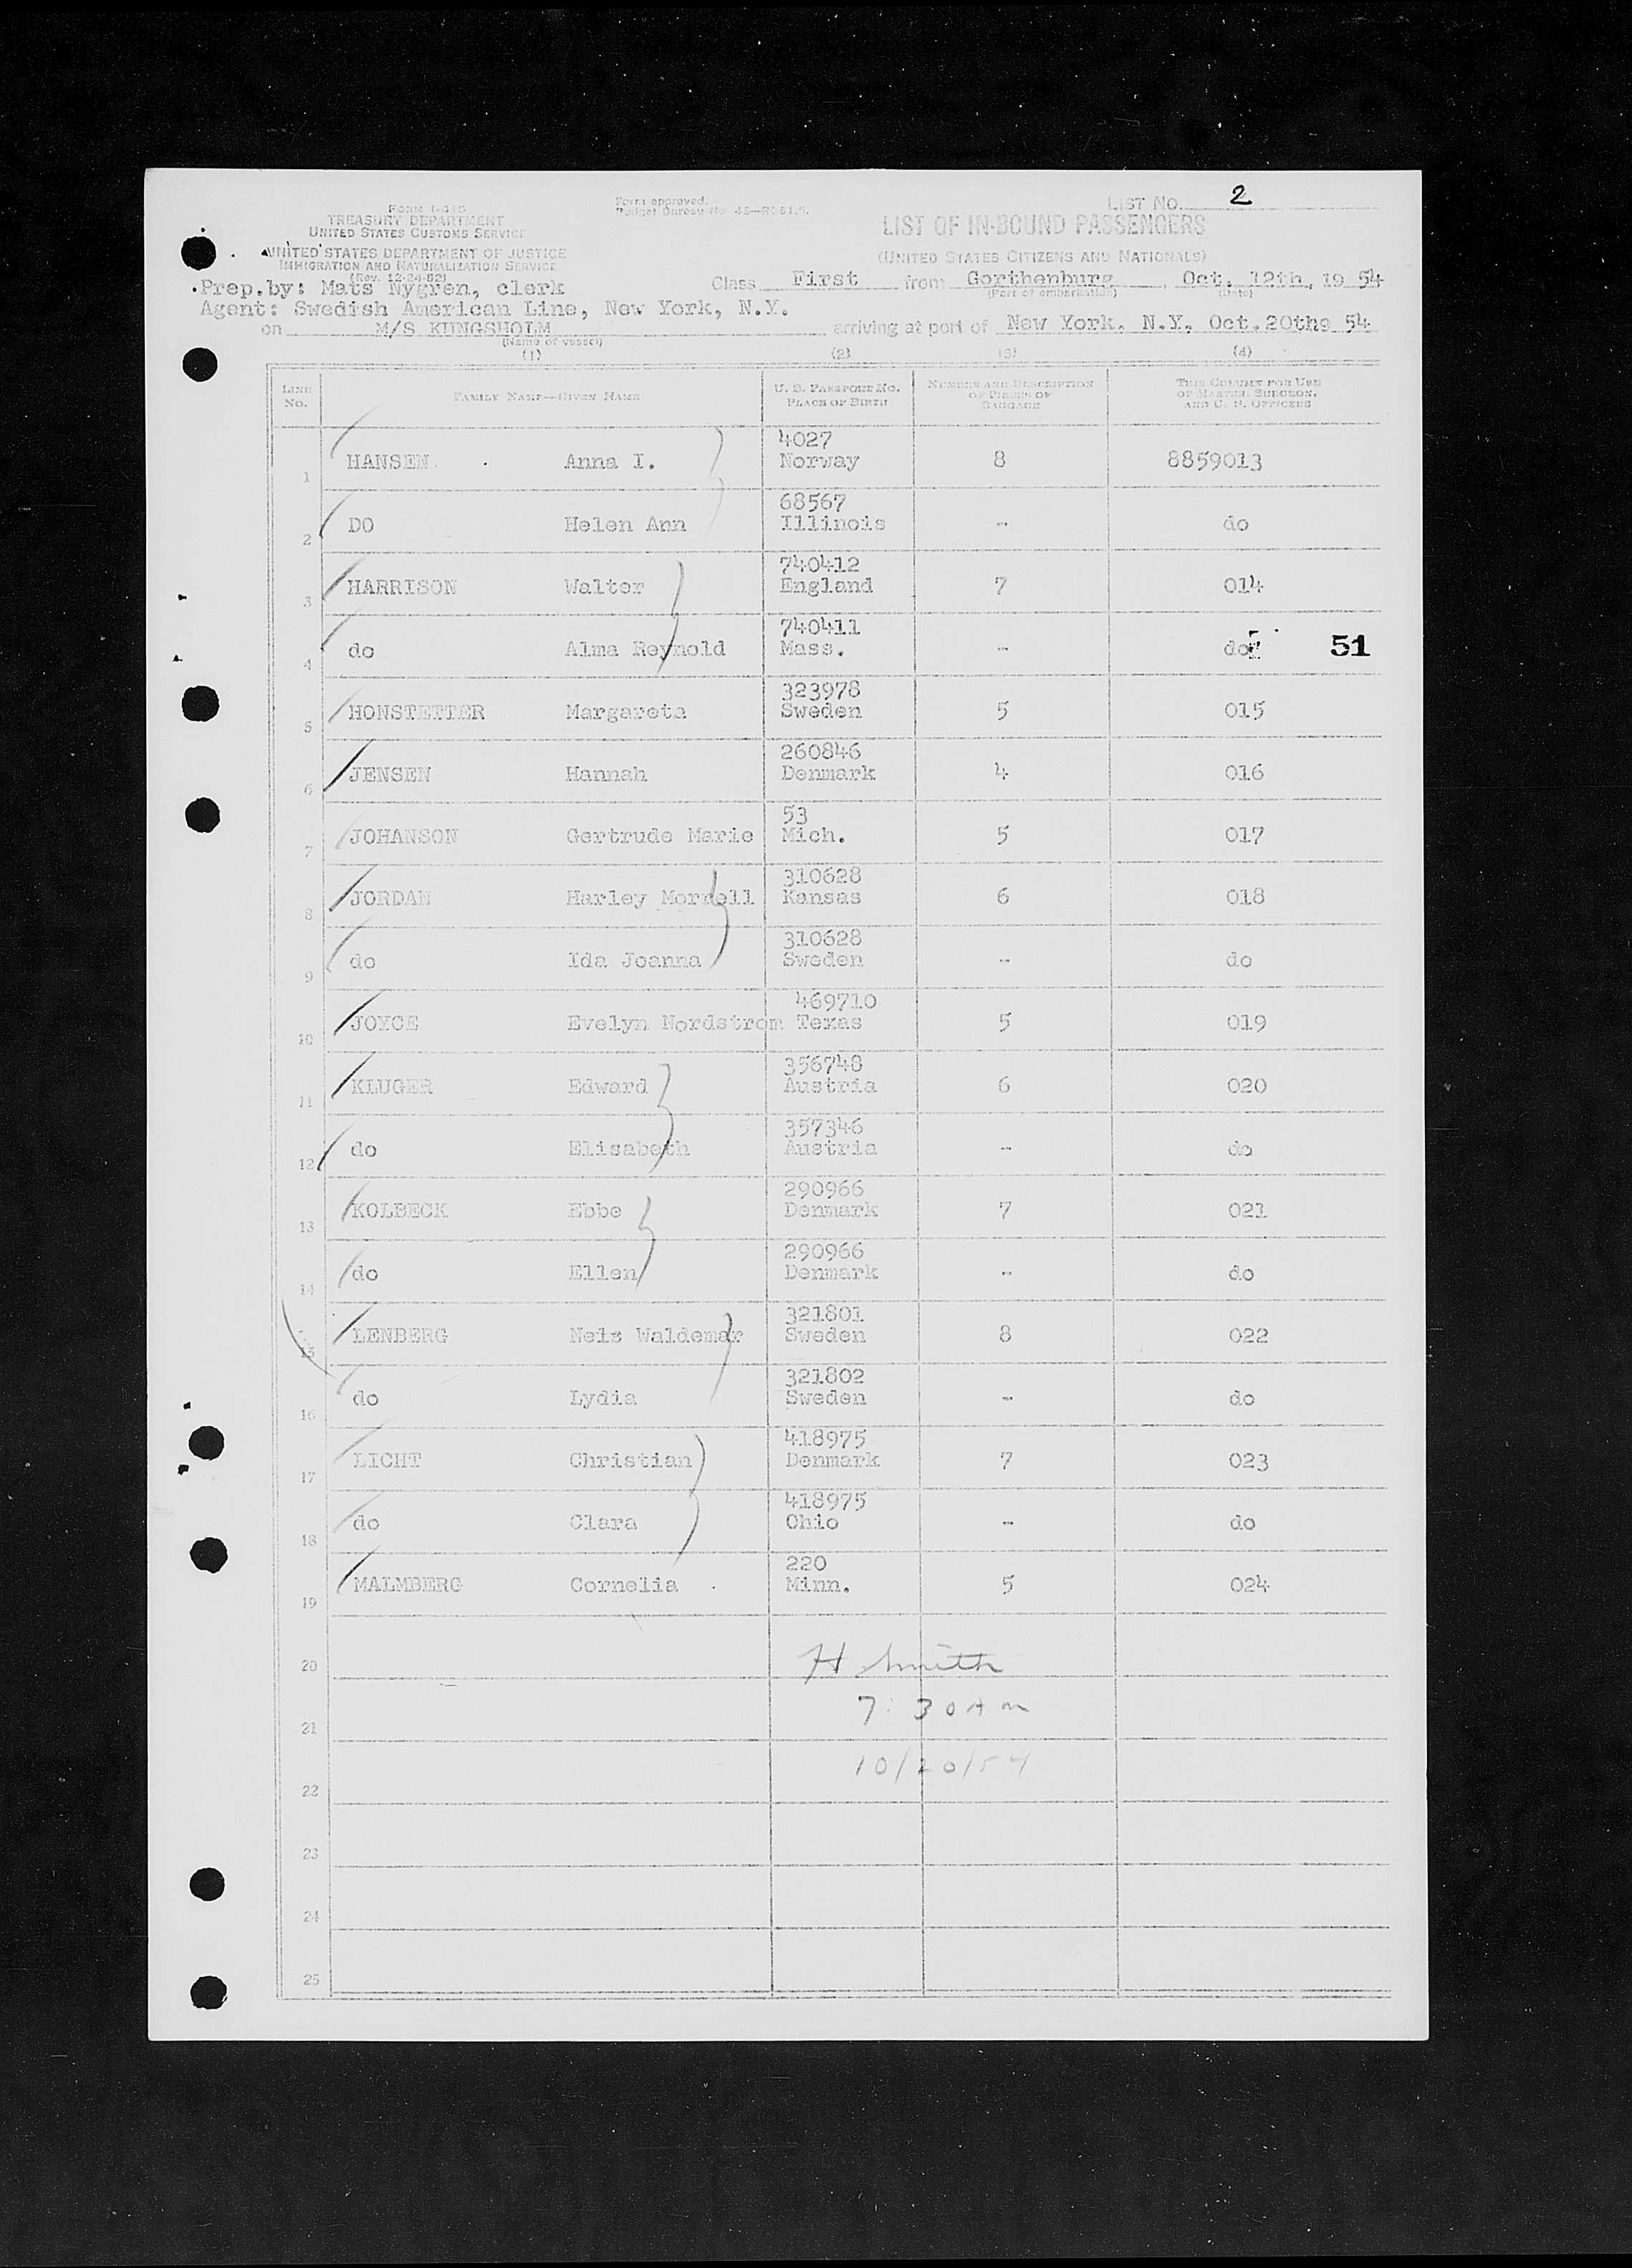 LIST No. 2
FORM I-415
TREASURY DEPARTMENT
UNITED STATES CUSTOMS SERVICE
UNITED STATES DEPARTMENT OF JUSTICE
IMMIGRATION AND NATURALIZATION SERVICE
(Rev. 12-24-52)
Form approved.
LIST OF IN-BOUND PASSENGERS
(UNITED STATES CITIZENS AND NATIONALS)
Prep.by: Mats Nygren, clerk
Class First from Gorthenburg, Oct. 12th, 19 54
(Port of embarkation) (Date)
Agent: Swedish American Line, New York, N.Y.
on M/S KUNGSHOLM arriving at port of New York. N.Y. Oct.20the 54
(Name of vessel)
(1) (2) (3) (4)
LINE No. FAMILY NAME—GIVEN NAME U. S. PASSPORT NO. PLACE OF BIRTH NUMBER AND DESCRIPTION OF PIECES OF BAGGAGE THIS COLUMN FOR USE OF MASTER, SURGEON, AND U. S. OFFICERS
4027
1 HANSEN Anna I. Norway 8 8859013
68567
2 DO Helen Ann Illinois - do
740412
3 HARRISON Walter England 7 014
740411
4 do Alma Reynold Mass. - do 51
323978
5 HONSTETTER Margareta Sweden 5 015
260846
6 JENSEN Hannah Denmark 4 016
53
7 JOHANSON Gertrude Marie Mich. 5 017
310628
8 JORDAN Harley Morrell Kansas 6 018
310628
9 do Ida Joanna Sweden - do
469710
10 JOYCE Evelyn Nordstrom Texas 5 019
356748
11 KLUGER Edward Austria 6 020
357346
12 do Elisabeth Austria - do
290966
13 KOLBECK Ebbe Denmark 7 021
290966
14 do Ellen Denmark - do
321801
15 LENBERG Neis Waldemar Sweden 8 022
321802
16 do Lydia Sweden - do
418975
17 LICHT Christian Denmark 7 023
418975
18 do Clara Ohio - do
220
19 MALMBERG Cornelia Minn. 5 024
20 H Smith
21 7:30 AM
22 10/20/54
23
24
25